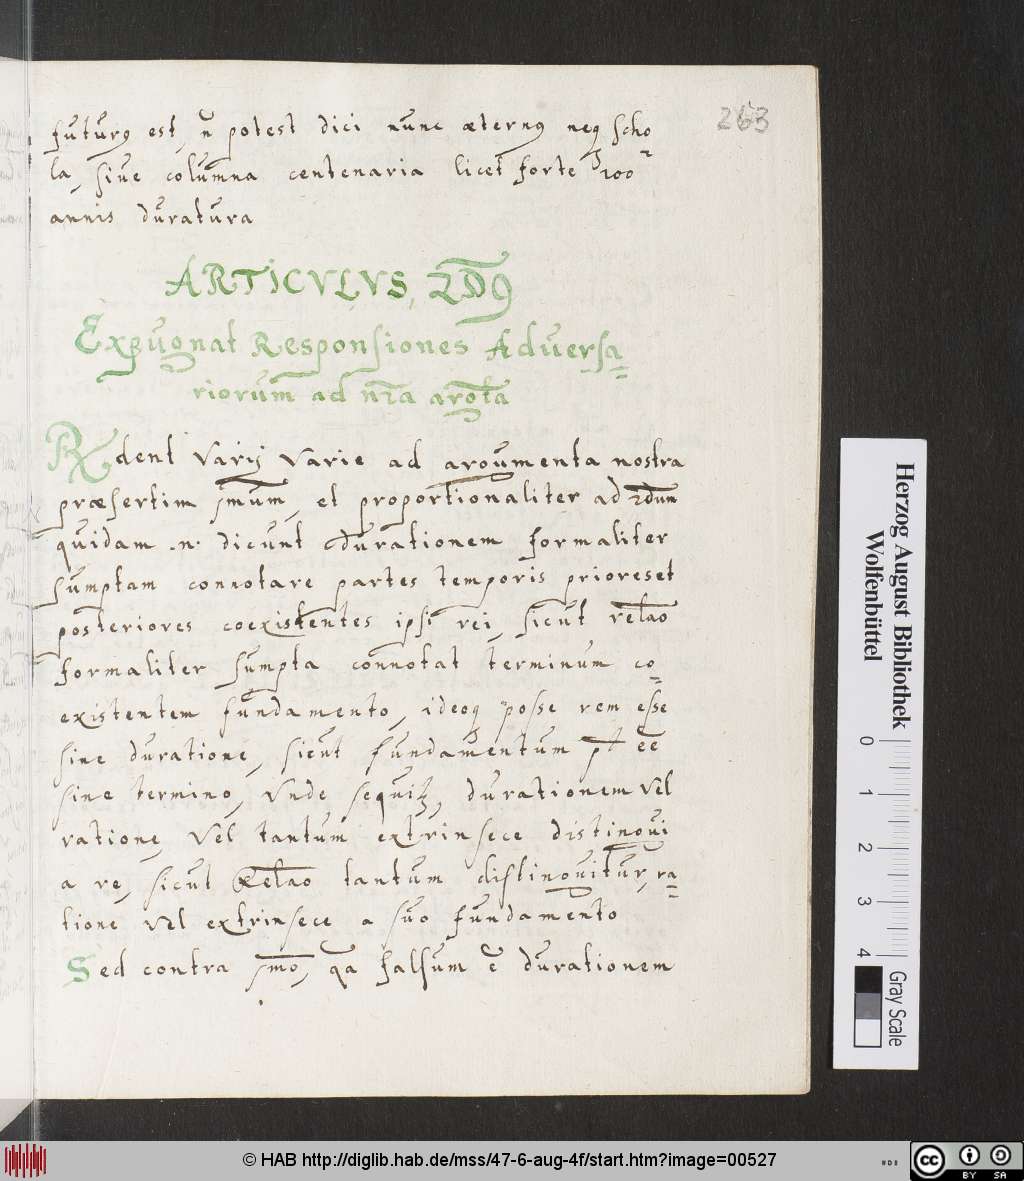 263
futurꝰ est, ñ potest dici nunc æternꝰ neqꝫ scho
la, siue columna centenaria licet forte 200
annis duratura
ARTICVLVS, 2Dꝰ
Expugnat Responsiones Aduersa
riorum ad nr̄a argta
Rx̃dent varij varie ad argumenta nostra
præsertim 1mum, et proportionaliter ad 2dum
quidam .n. dicunt durationem formaliter
sumptam connotare partes temporis priores et
posteriores coexistentes ipsi rei, sicut relāo
formaliter sumpta connotat terminum co
existentem fundamento, ideoqꝫ posse rem esse
sine duratione, sicut fundamentum pt̄ ēe
sine termino, Vnde sequitꝛ, durationem vel
ratione, vel tantum extrinsece distingui
a re, sicut Relāo tantum distinguitur, ra
tione vel extrinsece a suo fundamento
Sed contra 1mo, qa falsum ē durationem
Herzog August Bibliothek
Wolfenbüttel
0 1 2 3 4
Gray Scale
© HAB http://diglib.hab.de/mss/47-6-aug-4f/start.htm?image=00527
cc BY SA